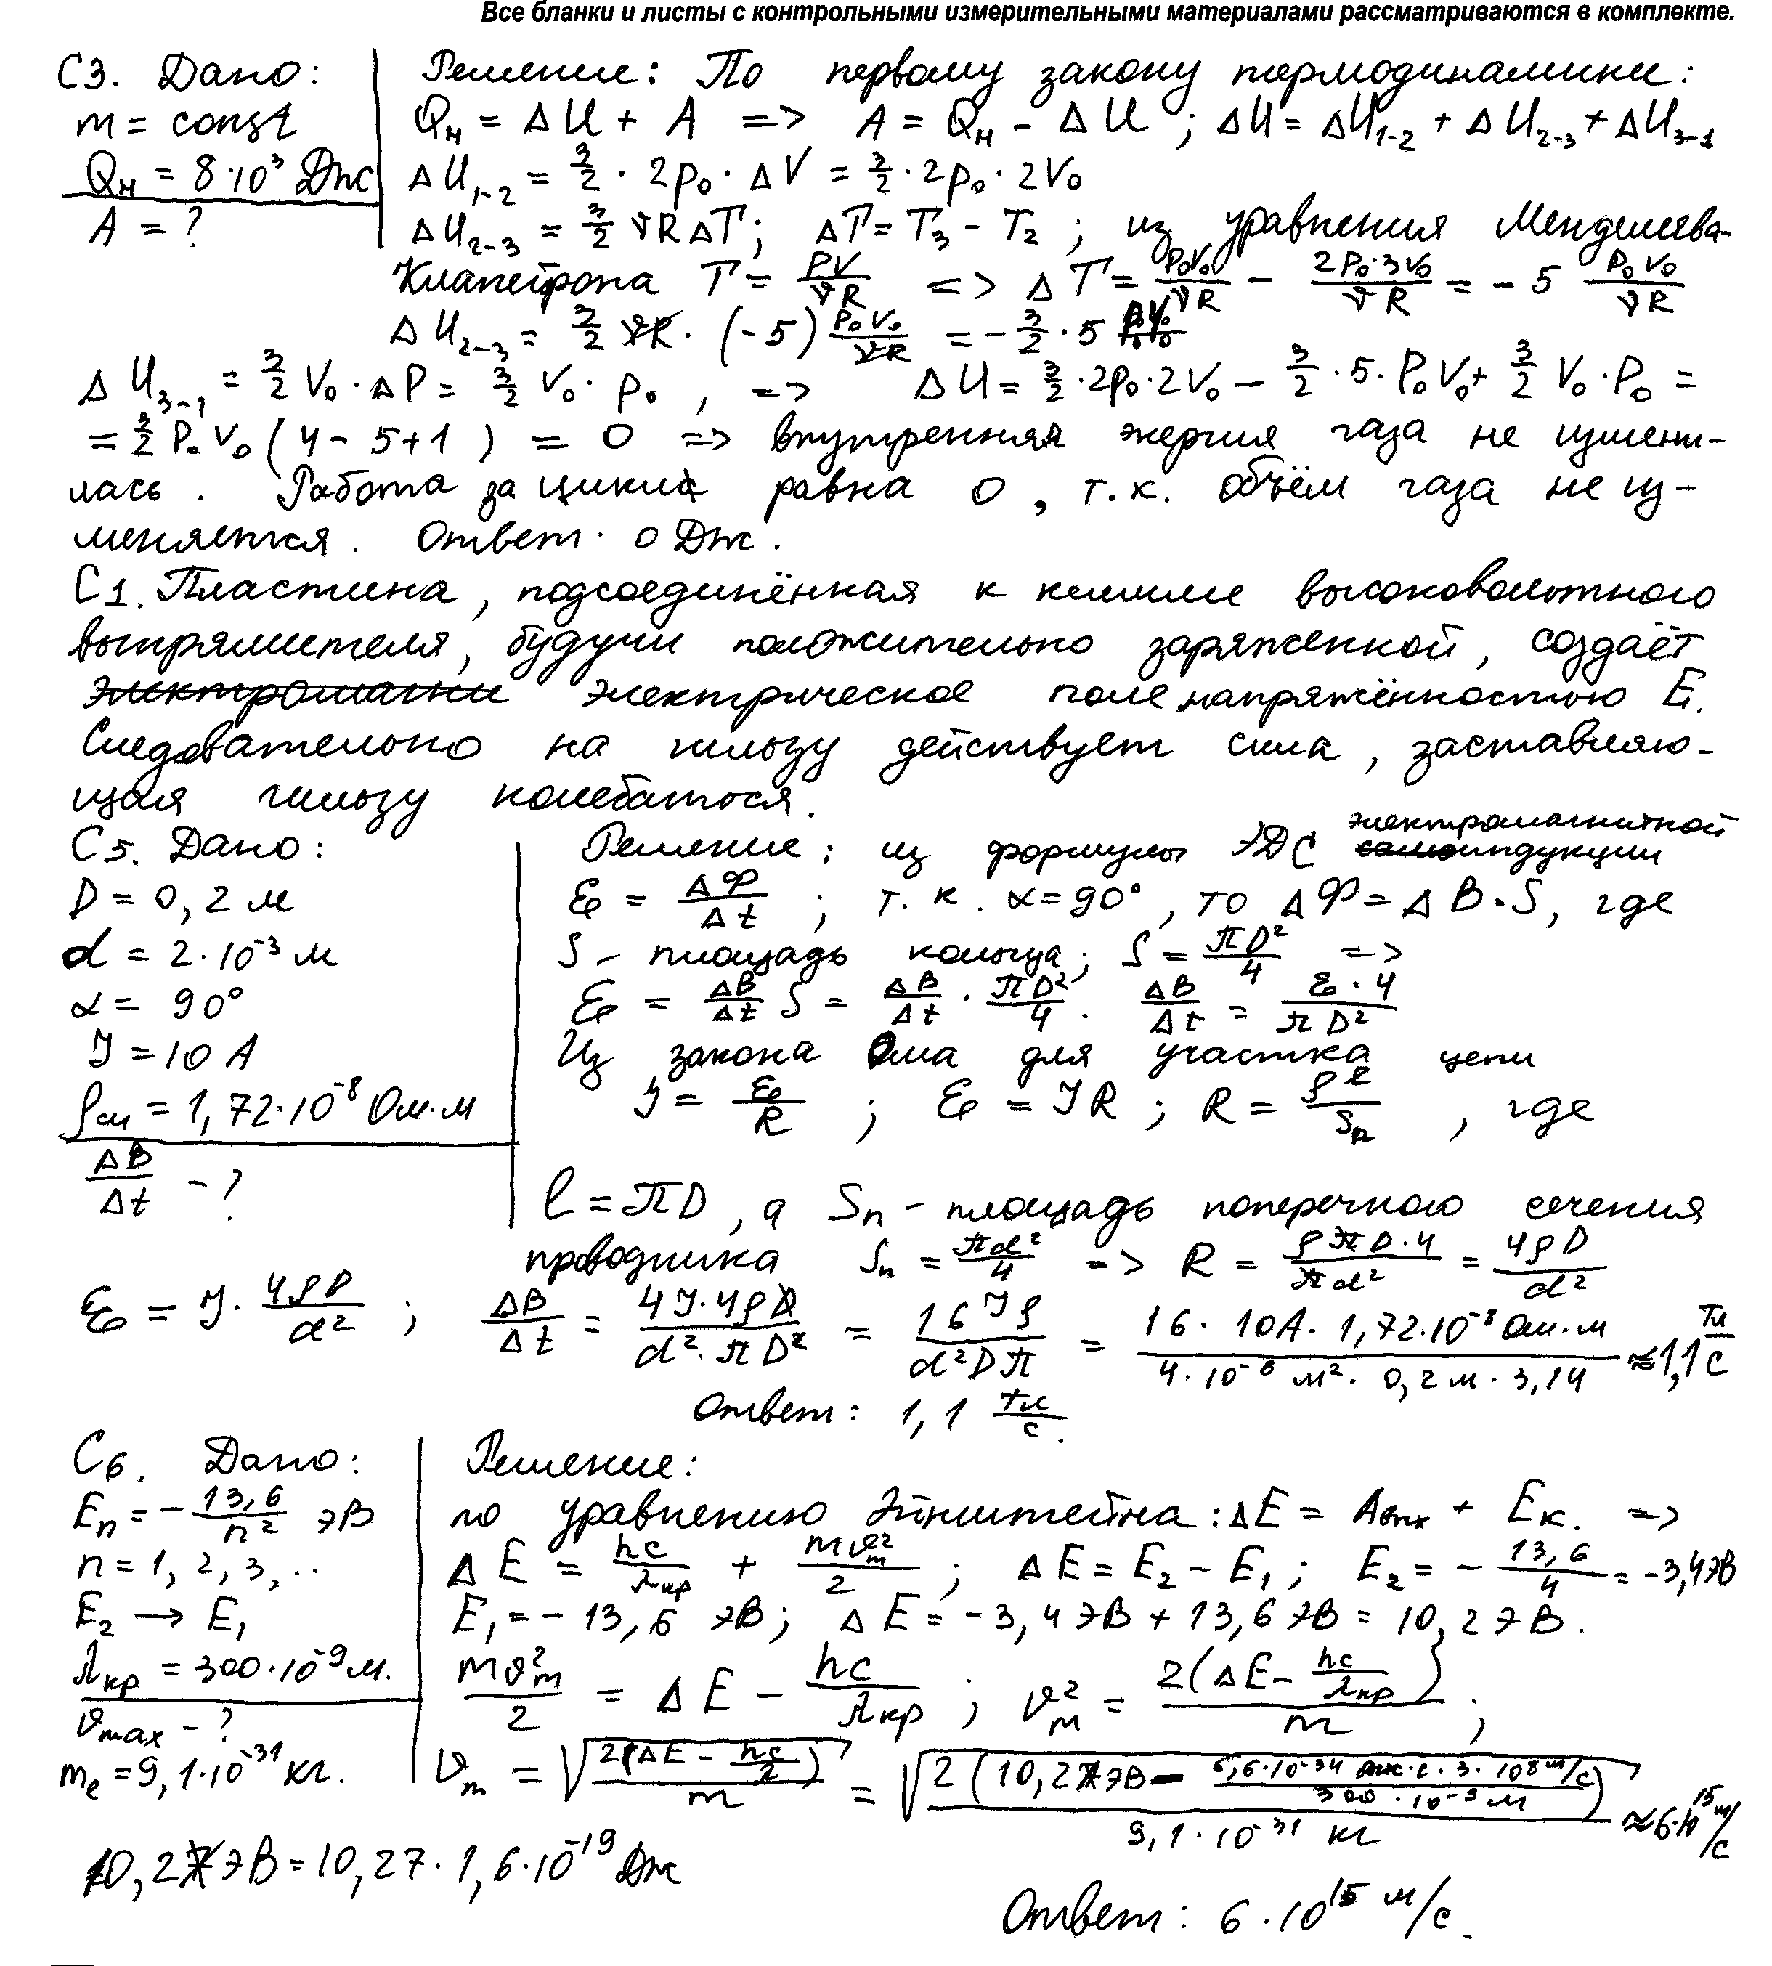 Все бланки и листы с контрольными измерительными материалами рассматриваются в комплекте.
С3. Дано:
m = const
Qн = 8·10³ Дж
A = ?
Решение: По первому закону термодинамики:
Qн = ΔU + A => A = Qн - ΔU ; ΔU = ΔU₁₋₂ + ΔU₂₋₃ + ΔU₃₋₁
ΔU₁₋₂ = 3/2 · 2p₀ · ΔV = 3/2 · 2p₀ · 2V₀
ΔU₂₋₃ = 3/2 νRΔT; ΔT = T₃ - T₂ ; из уравнения Менделеева-
Клапейрона T = PV/νR => ΔT = P₀V₀/νR - 2P₀·3V₀/νR = -5 P₀V₀/νR
ΔU₂₋₃ = 3/2 νR · (-5) P₀V₀/νR = -3/2 · 5 P₀V₀
ΔU₃₋₁ = 3/2 V₀ · ΔP = 3/2 V₀ · p₀ , => ΔU = 3/2 · 2p₀ · 2V₀ - 3/2 · 5 · P₀V₀ + 3/2 V₀ · P₀ =
= 3/2 P₀V₀ (4 - 5 + 1) = 0 => внутренняя энергия газа не измени-
лась. Работа за цикл равна 0, т.к. объём газа не из-
меняется. Ответ · 0 Дж.
С1. Пластина, подсоединённая к клемме высоковольтного
выпрямителя, будучи положительно заряженной, создаёт
электромагни электрическое поле напряжённостью E.
Следовательно на гильзу действует сила, заставляю-
щая гильзу колебаться.
С5. Дано:
D = 0,2 м
d = 2·10⁻³ м
α = 90°
J = 10 А
ρсм = 1,72·10⁻⁸ Ом·м
ΔB/Δt - ?
Решение: из формулы ЭДС электромагнитной индукции
ℰ = ΔФ/Δt ; т.к. α = 90°, то ΔФ = ΔB·S, где
S - площадь кольца; S = πD²/4 =>
ℰ = ΔB/Δt S = ΔB/Δt · πD²/4 . ΔB/Δt = ℰ·4/πD²
Из закона Ома для участка цепи
J = ℰ/R ; ℰ = JR ; R = ρl/Sп , где
l = πD, а Sп - площадь поперечного сечения
проводника Sп = πd²/4 => R = ρπD·4/πd² = 4ρD/d²
ℰ = J · 4ρD/d² ; ΔB/Δt = 4J·4ρD/d²·πD² = 16Jρ/d²Dπ = 16 · 10А · 1,72·10⁻⁸ Ом·м / 4·10⁻⁶ м² · 0,2 м · 3,14 ≈ 1,1 Тл/с
Ответ: 1,1 Тл/с.
С6. Дано:
Eₙ = -13,6/n² эВ
n = 1, 2, 3, ..
E₂ → E₁
λкр = 300·10⁻⁹ м.
υmax - ?
mₑ = 9,1·10⁻³¹ кг.
Решение:
по уравнению Эйнштейна: ΔE = Aвых + Eк. =>
ΔE = hc/λкр + mυm²/2 ; ΔE = E₂ - E₁ ; E₂ = -13,6/4 = -3,4 эВ
E₁ = -13,6 эВ; ΔE = -3,4 эВ + 13,6 эВ = 10,2 эВ.
mυm²/2 = ΔE - hc/λкр ; υm² = 2(ΔE - hc/λкр)/m ;
υm = √(2(ΔE - hc/λ)/m) = √(2(10,27 эВ - 6,6·10⁻³⁴ Дж·с·3·10⁸ м/с / 300·10⁻⁹ м) / 9,1·10⁻³¹ кг) ≈ 6·10¹⁵ м/с
10,27 эВ = 10,27 · 1,6·10⁻¹⁹ Дж
Ответ: 6·10¹⁵ м/с.